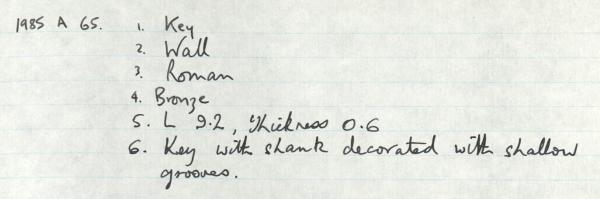 1985 A 65. 1. Key
2. Wall
3. Roman
4. Bronze
5. L 9.2, thickness 0.6
6. Key with shank decorated with shallow
grooves.